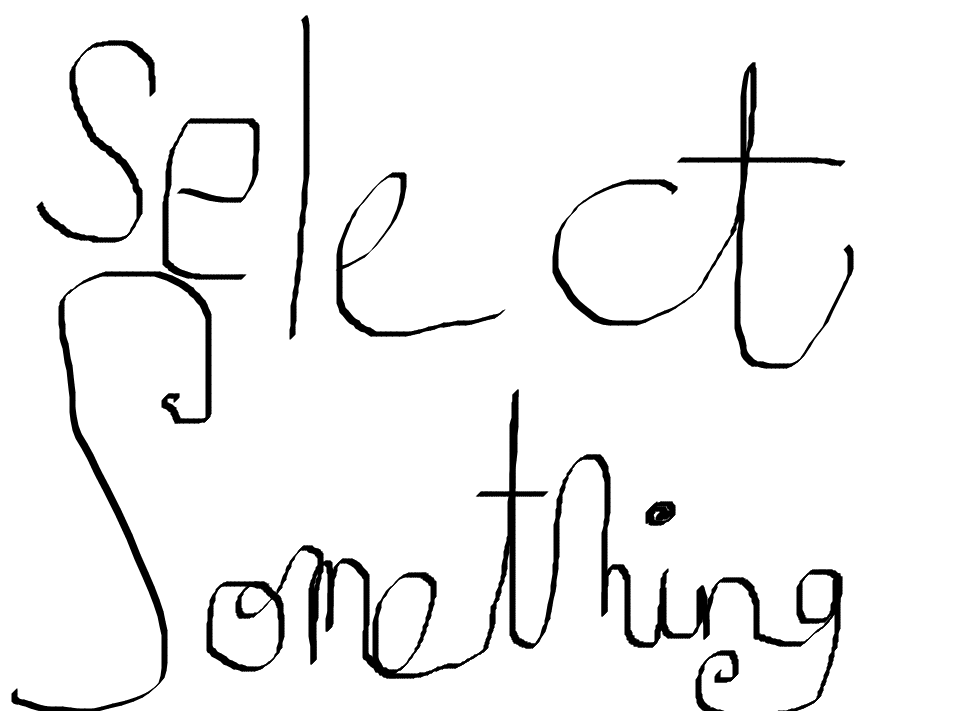 Select
Something